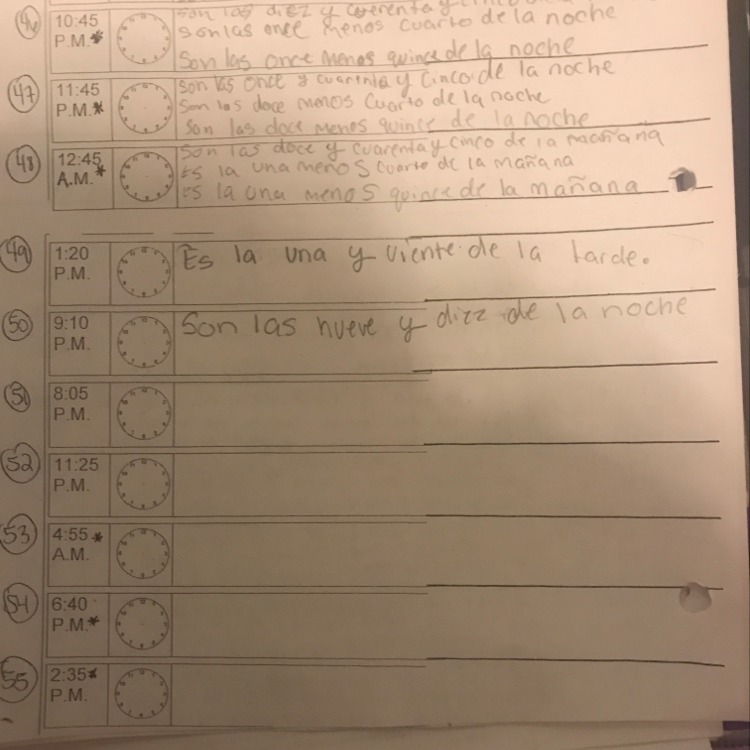 46 10:45 P.M.* Son las diez y cuerenta y cinco de la noche
Son las once menos cuarto de la noche
Son las once menos quince de la noche
47 11:45 P.M.* Son las once y cuarenta y cinco de la noche
Son las doce menos cuarto de la noche
Son las doce menos quince de la noche
48 12:45 A.M.* Son las doce y cuarenta y cinco de la mañana
Es la una menos cuarto de la mañana
Es la una menos quince de la mañana
49 1:20 P.M. Es la una y viente de la tarde.
50 9:10 P.M. Son las nueve y diez de la noche
51 8:05 P.M.
52 11:25 P.M.
53 4:55* A.M.
54 6:40 P.M.*
55 2:35* P.M.